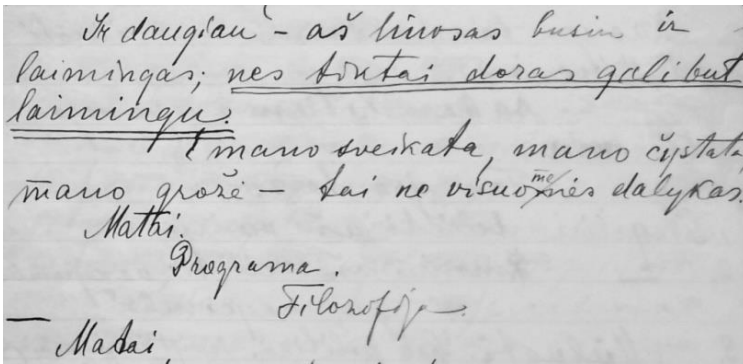 Ir daugiau – aš linosas busiu ir
laimingas; nes tiktai doras gali but
laimingu.
( mano sveikata, mano čystata,
mano grožė – tai ne visuomenės dalykas.
Mattai.
Programa.
Filozofija.
— Matai